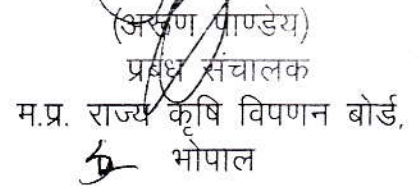 (अरूण पाण्डेय)
प्रबंध संचालक
म.प्र. राज्य कृषि विपणन बोर्ड,
भोपाल